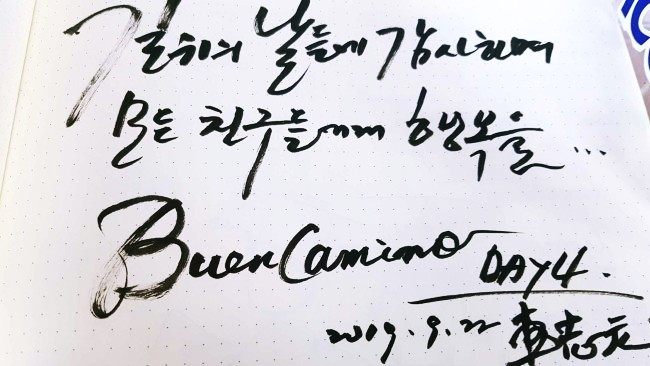 길위의 날들에 감사하며
모든 친구들에게 행복을...
Buen Camino
DAY 4.
2019. 9. 22 李志